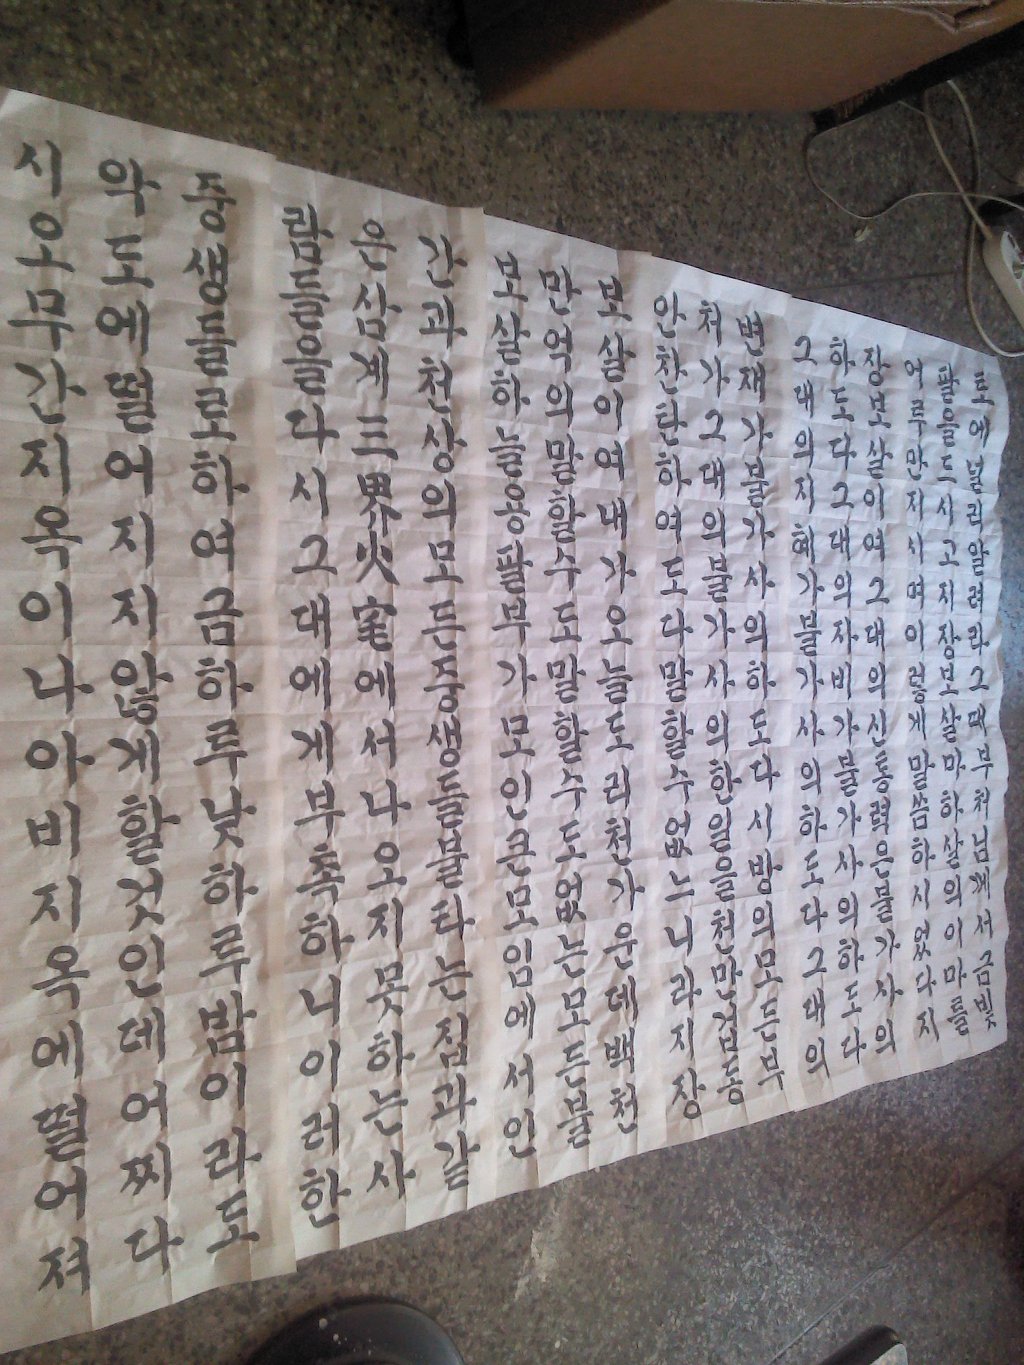 도에 널리 알려라 그때 부처님께서 금빛
팔을 드시고 지장보살마하살의 이마를
어루만지시며 이렇게 말씀하시었다 지
장보살이여 그대의 신통력은 불가사의
하도다 그대의 자비가 불가사의하도다
그대의 지혜가 불가사의하도다 그대의
변재가 불가사의하도다 시방의 모든 부
처가 그대의 불가사의한 일을 천만겁동
안 찬탄하여도 다 말할 수 없느니라 지장
보살이여 내가 오늘 도리천 가운데 백천
만억의 말할 수도 말할 수도 없는 모든 불
보살 하늘용팔부가 모인 큰 모임에서 인
간과 천상의 모든 중생들 불타는 집과 같
은 삼계三界火宅에서 나오지 못하는 사
람들을 다시 그대에게 부촉하니 이러한
중생들로 하여금 하루낮 하루밤이라도
악도에 떨어지지 않게 할 것인데 어찌 다
시 오무간지옥이나 아비지옥에 떨어져